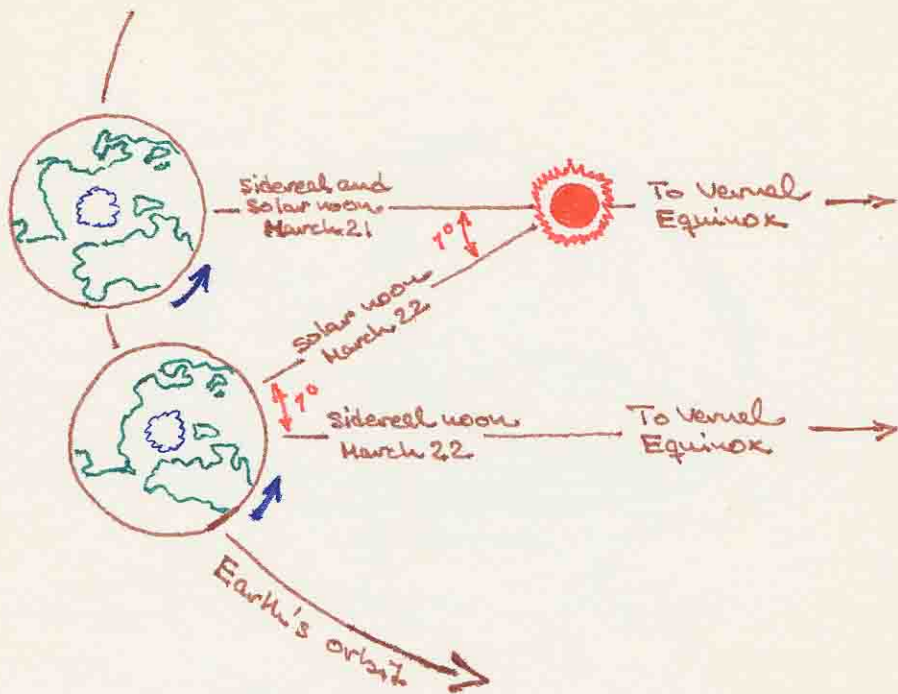 Sidereal and
Solar noon
March 21
To Vernal
Equinox
1°
Solar noon
March 22
1°
Sidereal noon
March 22
To Vernal
Equinox
Earth's orbit